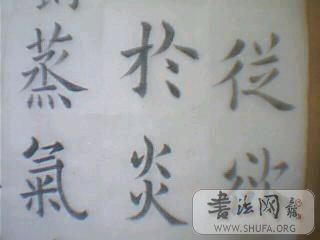 從
於炎
蒸氣
書法网
WWW.SHUFA.ORG